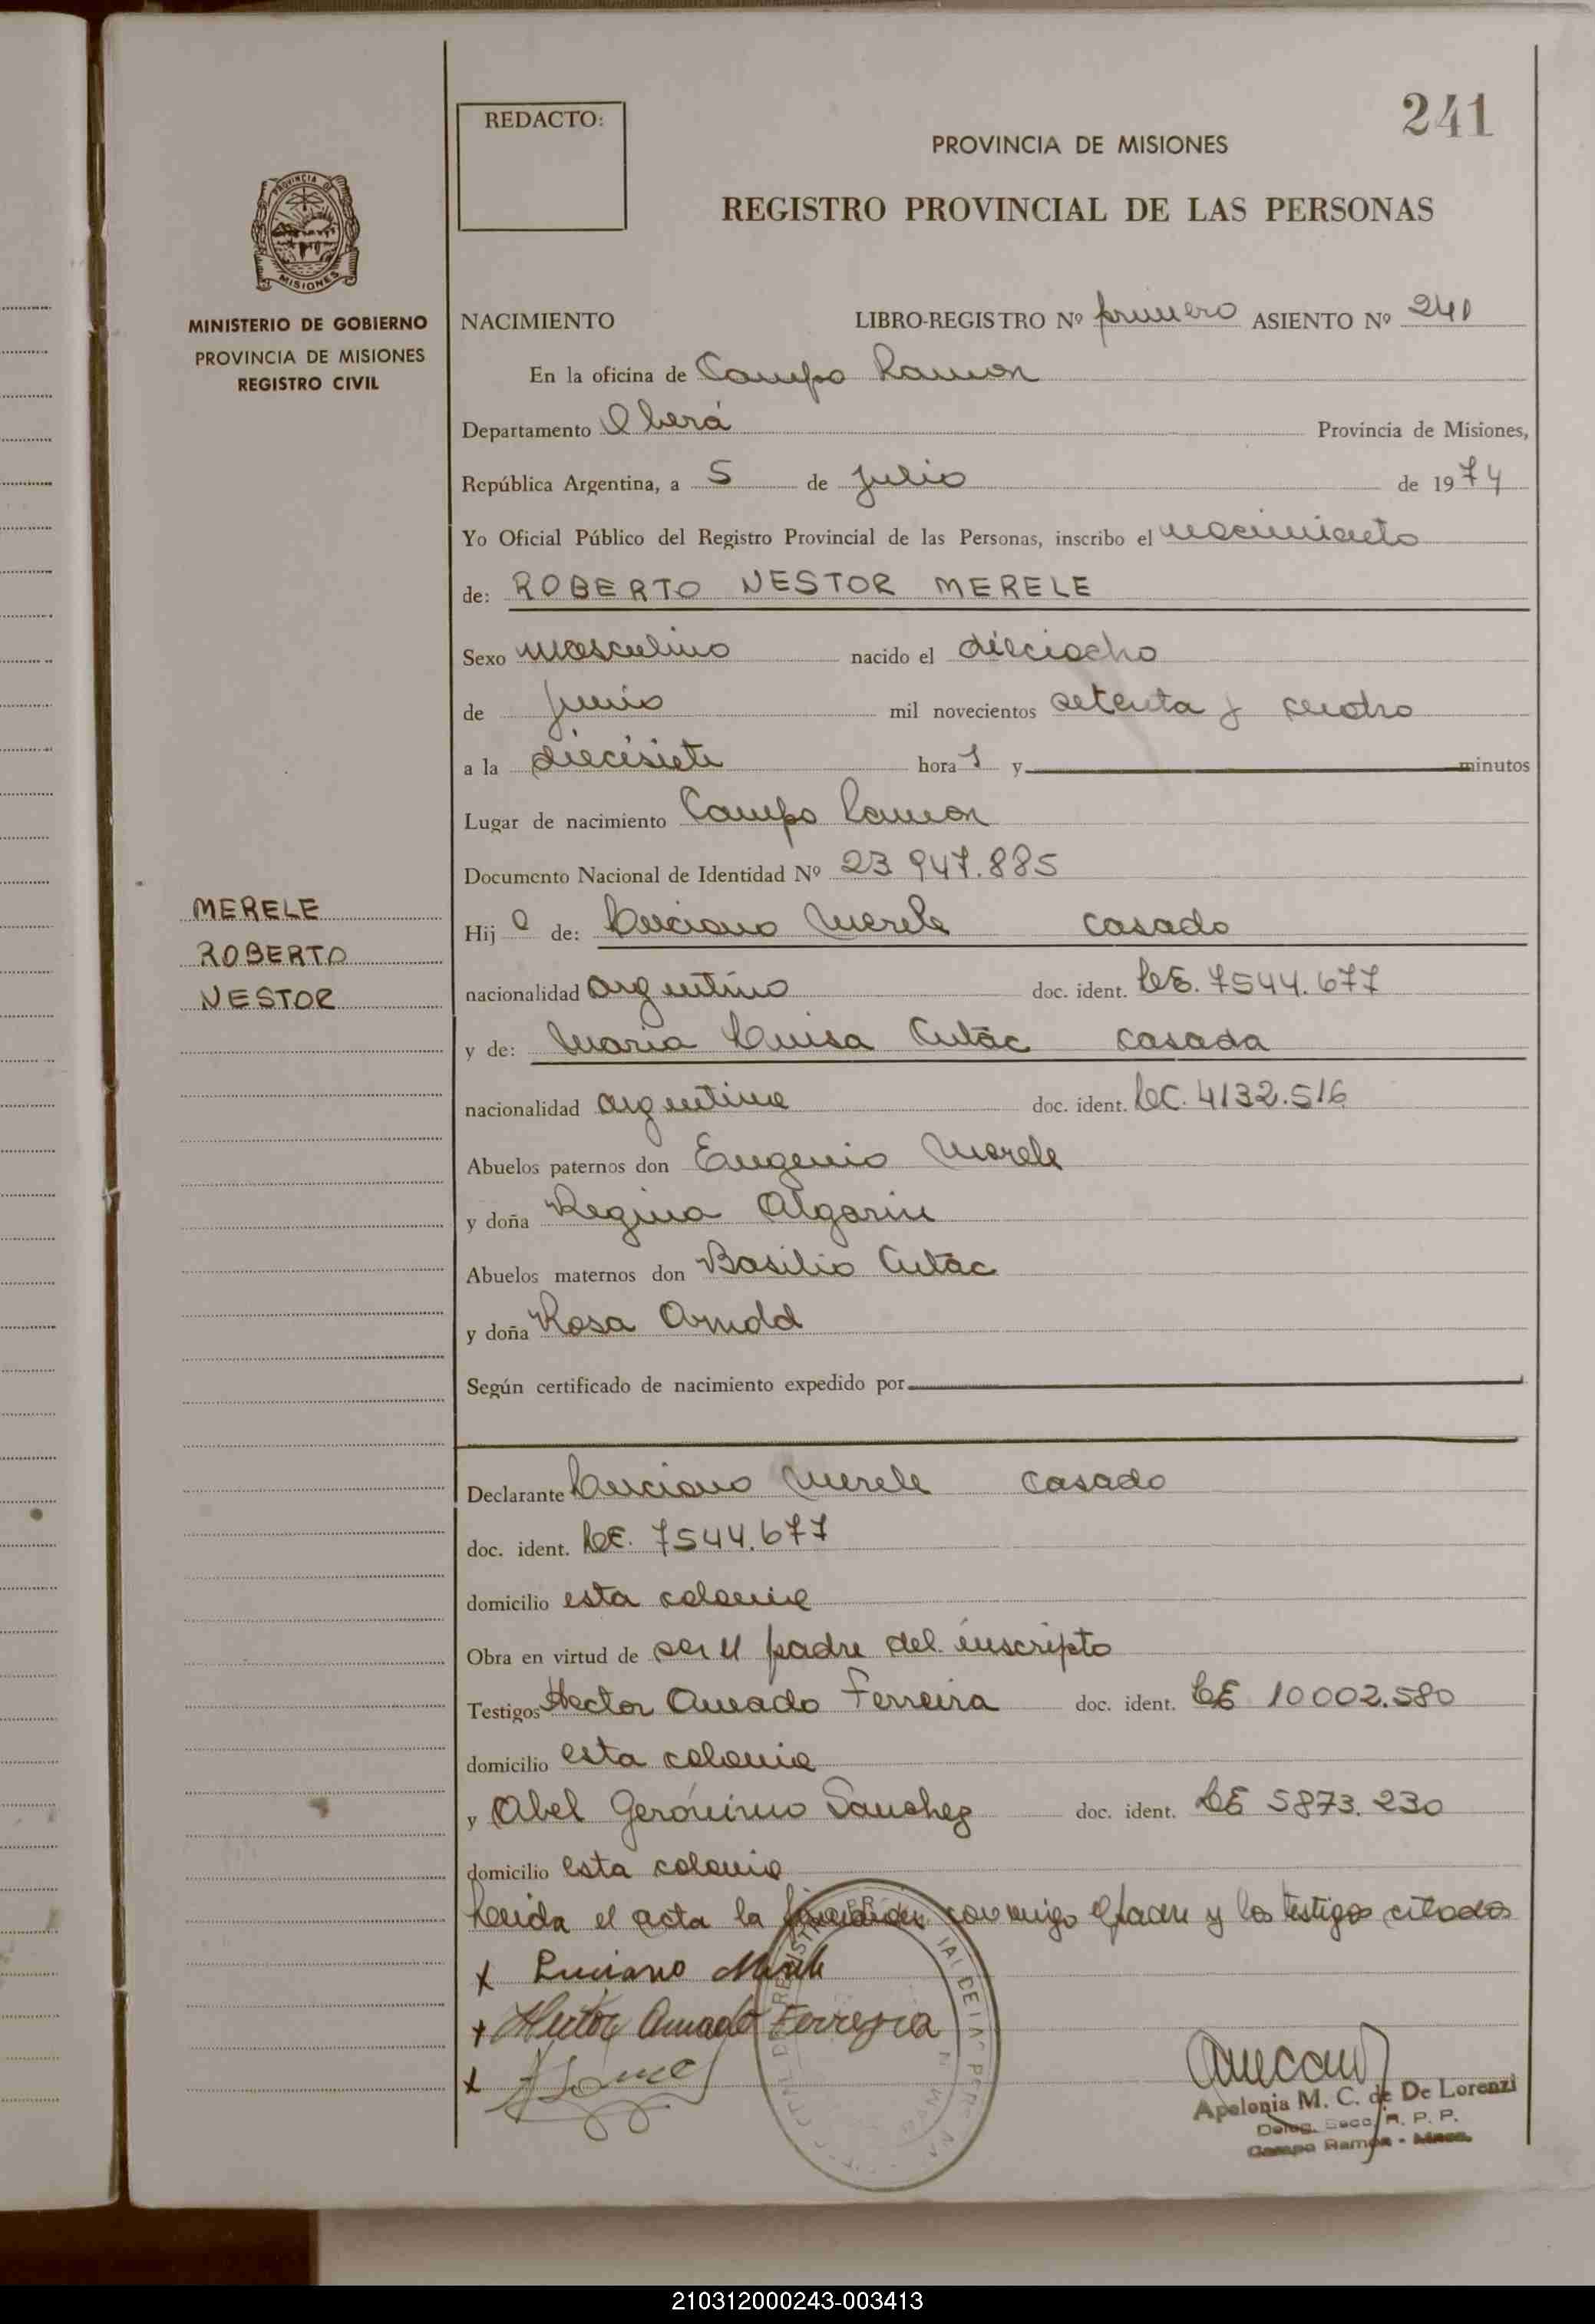 241
REDACTO:
PROVINCIA DE MISIONES
REGISTRO PROVINCIAL DE LAS PERSONAS
PROVINCIA DE
MISIONES
MINISTERIO DE GOBIERNO
PROVINCIA DE MISIONES
REGISTRO CIVIL
NACIMIENTO LIBRO-REGISTRO Nº primero ASIENTO Nº 241
En la oficina de Campo Ramon
Departamento Oberá Provincia de Misiones,
República Argentina, a 5 de julio de 1974
Yo Oficial Público del Registro Provincial de las Personas, inscribo el nacimiento
de: ROBERTO NESTOR MERELE
Sexo masculino nacido el dieciocho
de junio mil novecientos setenta y cuatro
a la diecisiete hora s y minutos
Lugar de nacimiento Campo Ramon
Documento Nacional de Identidad Nº 23 947.885
MERELE
ROBERTO
NESTOR
Hijo de: Luciano Merele casado
nacionalidad argentino doc. ident. LE. 7544.677
y de: Maria Luisa casada
nacionalidad argentina doc. ident. LC. 4132.516
Abuelos paternos don Eugenio Merele
y doña Regina Algarin
Abuelos maternos don Basilio
y doña Rosa Arnold
Según certificado de nacimiento expedido por
Declarante Luciano Merele casado
doc. ident. LE. 7544.677
domicilio esta colonia
Obra en virtud de ser el padre del inscripto
Testigos Hector Amado Ferreira doc. ident. LE 10002.580
domicilio esta colonia
y Abel Gerónimo Sanchez doc. ident. LE 5873.230
domicilio esta colonia
Leida el acta la conmigo el padre y los testigos citados
x Luciano Merele
x Hector Amado Ferreira
x
Apolonia M. C. de De Lorenzi
Deleg. Secc. R. P. P.
Campo Ramón - Mnes.
210312000243-003413